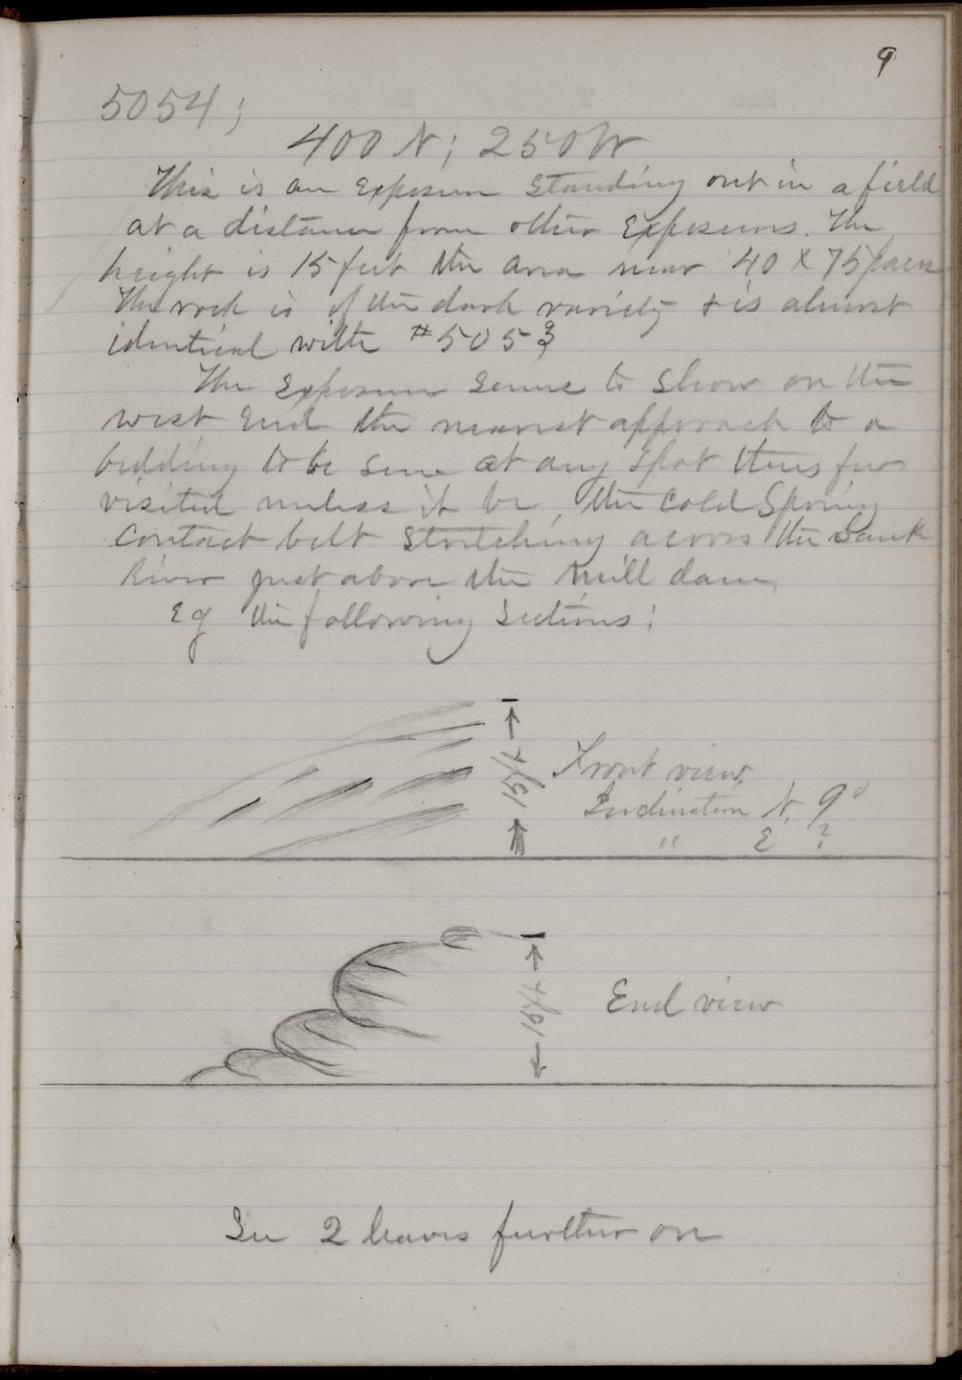 9
5054;
400 N; 250 W
This is an exposure standing out in a field
at a distance from other exposures. The
height is 15 feet the area near 40 X 75 paces
The rock is of the dark variety + is almost
identical with #5053
The exposure seems to show on the
west end the nearest approach to a
bedding to be seen at any spot thus far
visited unless it be, the Cold Spring
Contact belt stretching across the Sauk
River just above the mill dam.
Eg the following sections:
Front view.
Inclination N. 9°
" E ?
End view
See 2 leaves further on